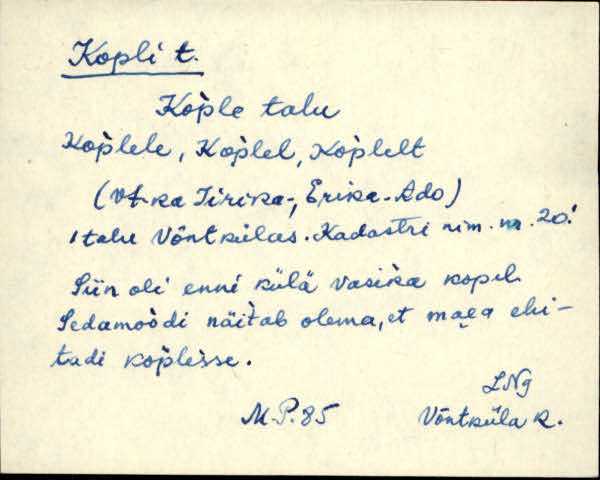 Kopli t.
Kop̀le talu
Kop̀lele, Kop̀lel, Kop̀lelt
(Vt-ka Iirika-, Erika-Ado)
, talu Võntkülas. Kadastri nim. nr. 20!
Siin oli enne külä vasika kopel.
Sedamoòdi näitab olema, et maea ehi-
tadi kop̀lesse.
LNg
M.P.85 Võntküla k.